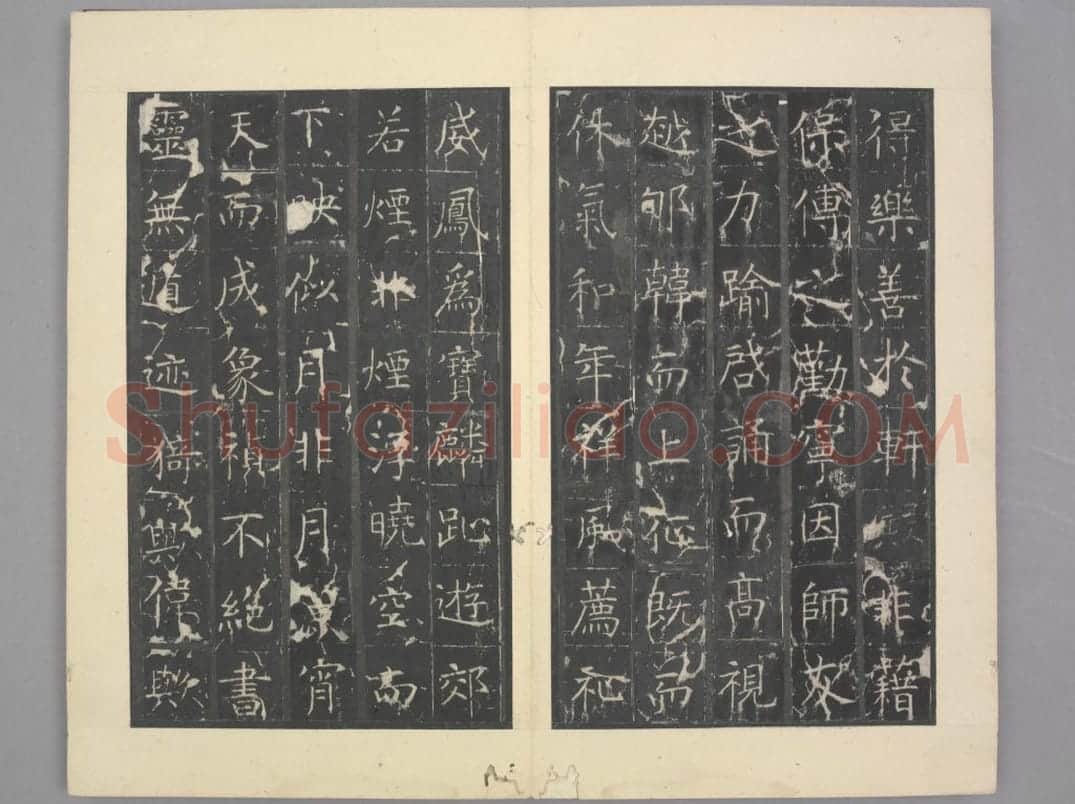 得樂善於軒非籍
保傅之勸寧因師友
之力踰啓誦而高視
越韓而上征既而
休氣和年祥風薦祉
威鳳爲寶麟趾遊郊
若煙非煙浮曉空而
下映似月非月凜宵
天而成象禎不絕書
靈無遁迹猗歟偉歟
Shufaziliao.COM